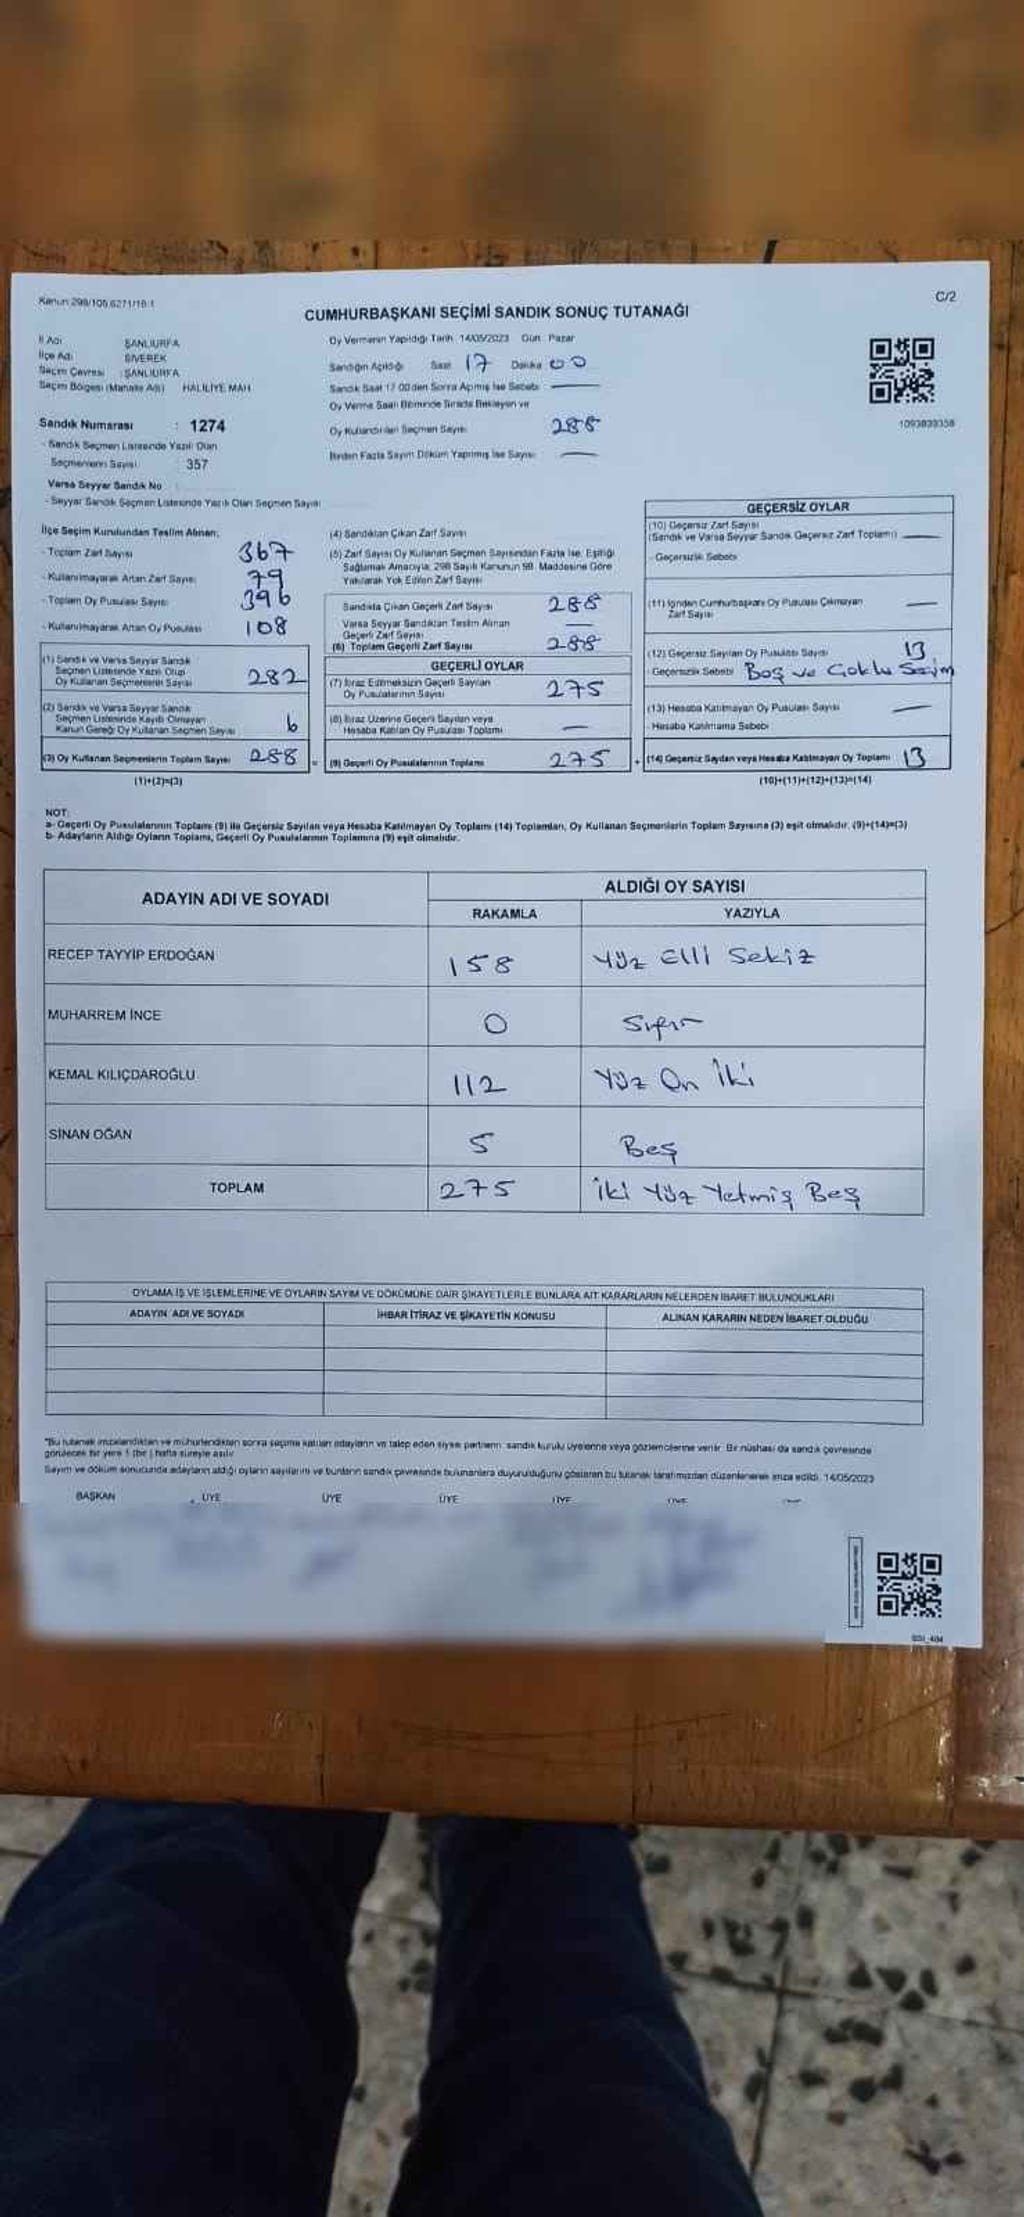 Kanun:298/105,6271/18-1
C/2
CUMHURBAŞKANI SEÇİMİ SANDIK SONUÇ TUTANAĞI
İl Adı : ŞANLIURFA
İlçe Adı : SİVEREK
Seçim Çevresi : ŞANLIURFA
Seçim Bölgesi (Mahalle Adı) HALİLİYE MAH
Sandık Numarası : 1274
- Sandık Seçmen Listesinde Yazılı Olan
Seçmenlerin Sayısı : 357
Varsa Seyyar Sandık No
- Seyyar Sandık Seçmen Listesinde Yazılı Olan Seçmen Sayısı
Oy Vermenin Yapıldığı Tarih 14/05/2023 Gün : Pazar
Sandığın Açıldığı Saat 17 Dakika 00
Sandık Saat 17.00'den Sonra Açılmış İse Sebebi —
Oy Verme Saati Bitiminde Sırada Bekleyen ve
Oy Kullandırılan Seçmen Sayısı 288
Birden Fazla Sayım Döküm Yapılmış İse Sayısı —
1093839358
İlçe Seçim Kurulundan Teslim Alınan;
- Toplam Zarf Sayısı 367
- Kullanılmayarak Artan Zarf Sayısı 79
- Toplam Oy Pusulası Sayısı 396
- Kullanılmayarak Artan Oy Pusulası 108
(1) Sandık ve Varsa Seyyar Sandık
Seçmen Listesinde Yazılı Olup
Oy Kullanan Seçmenlerin Sayısı 282
(2) Sandık ve Varsa Seyyar Sandık
Seçmen Listesinde Kayıtlı Olmayan
Kanun Gereği Oy Kullanan Seçmen Sayısı 6
(3) Oy Kullanan Seçmenlerin Toplam Sayısı 288
(1)+(2)=(3)
(4) Sandıktan Çıkan Zarf Sayısı
(5) Zarf Sayısı Oy Kullanan Seçmen Sayısından Fazla İse, Eşitliği
Sağlamak Amacıyla, 298 Sayılı Kanunun 98. Maddesine Göre
Yakılarak Yok Edilen Zarf Sayısı
Sandıkta Çıkan Geçerli Zarf Sayısı 288
Varsa Seyyar Sandıktan Teslim Alınan
Geçerli Zarf Sayısı —
(6) Toplam Geçerli Zarf Sayısı 288
GEÇERLİ OYLAR
(7) İtiraz Edilmeksizin Geçerli Sayılan
Oy Pusulalarının Sayısı 275
(8) İtiraz Üzerine Geçerli Sayılan veya
Hesaba Katılan Oy Pusulası Toplamı —
= (9) Geçerli Oy Pusulalarının Toplamı 275
GEÇERSİZ OYLAR
(10) Geçersiz Zarf Sayısı
(Sandık ve Varsa Seyyar Sandık Geçersiz Zarf Toplamı) —
- Geçersizlik Sebebi
(11) İçinden Cumhurbaşkanı Oy Pusulası Çıkmayan
Zarf Sayısı —
(12) Geçersiz Sayılan Oy Pusulası Sayısı 13
- Geçersizlik Sebebi Boş ve Çoklu Seçim
(13) Hesaba Katılmayan Oy Pusulası Sayısı —
- Hesaba Katılmama Sebebi
+ (14) Geçersiz Sayılan veya Hesaba Katılmayan Oy Toplamı 13
(10)+(11)+(12)+(13)=(14)
NOT:
a- Geçerli Oy Pusulalarının Toplamı (9) ile Geçersiz Sayılan veya Hesaba Katılmayan Oy Toplamı (14) Toplamları, Oy Kullanan Seçmenlerin Toplam Sayısına (3) eşit olmalıdır. (9)+(14)=(3)
b- Adayların Aldığı Oyların Toplamı, Geçerli Oy Pusulalarının Toplamına (9) eşit olmalıdır.
ADAYIN ADI VE SOYADI
ALDIĞI OY SAYISI
RAKAMLA YAZIYLA
RECEP TAYYİP ERDOĞAN 158 Yüz Elli Sekiz
MUHARREM İNCE 0 Sıfır
KEMAL KILIÇDAROĞLU 112 Yüz On İki
SİNAN OĞAN 5 Beş
TOPLAM 275 İki Yüz Yetmiş Beş
OYLAMA İŞ VE İŞLEMLERİNE VE OYLARIN SAYIM VE DÖKÜMÜNE DAİR ŞİKAYETLERLE BUNLARA AİT KARARLARIN NELERDEN İBARET BULUNDUKLARI
ADAYIN ADI VE SOYADI İHBAR İTİRAZ VE ŞİKAYETİN KONUSU ALINAN KARARIN NEDEN İBARET OLDUĞU
"Bu tutanak imzalandıktan ve mühürlendikten sonra seçime katılan adayların ve talep eden siyasi partilerin sandık kurulu üyelerine veya gözlemcilerine verilir. Bir nüshası da sandık çevresinde
görülecek bir yere 1 (bir) hafta süreyle asılır.
Sayım ve döküm sonucunda adayların aldığı oyların sayılarını ve bunların sandık çevresinde bulunanlara duyurulduğunu gösteren bu tutanak tarafımızdan düzenlenerek imza edildi. 14/05/2023
BAŞKAN ÜYE ÜYE ÜYE ÜYE ÜYE